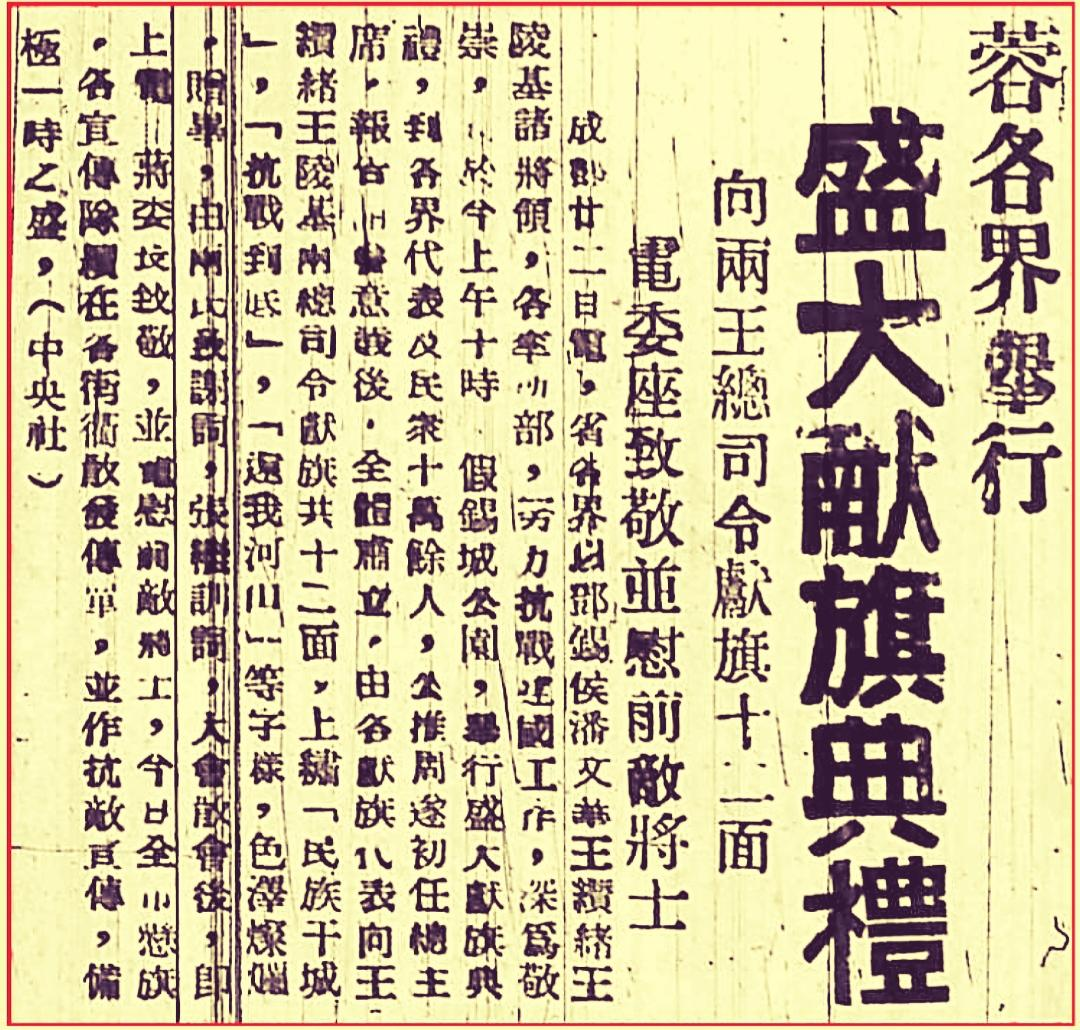 蓉各界舉行
盛大献旗典禮
向兩王總司令獻旗十二面
電委座致敬並慰前敵將士
成都廿二日電，省各界以鄧錫侯潘文華王纘緒王
陵基諸將領，各率川部，努力抗戰建國工作，深爲敬
崇，於今上午十時 假錫城公園，舉行盛大獻旗典
禮，到各界代表及民衆十萬餘人，公推周遂初任總主
席，報告川會意義後．全體肅立，由各獻旗代表向王
纘緒王陵基兩總司令獻旗共十二面，上繡「民族干城
」，「抗戰到底」，「還我河山」等字樣，色澤燦爛
，贈畢，由兩氏致謝詞，張繼訓詞，大會散會後，即
上電 蔣委坟致敬，並電慰前敵將士，今日全川懸旗
，各宣傳隊續在各街衢散發傳單，並作抗敵宣傳，備
極一時之盛，（中央社）